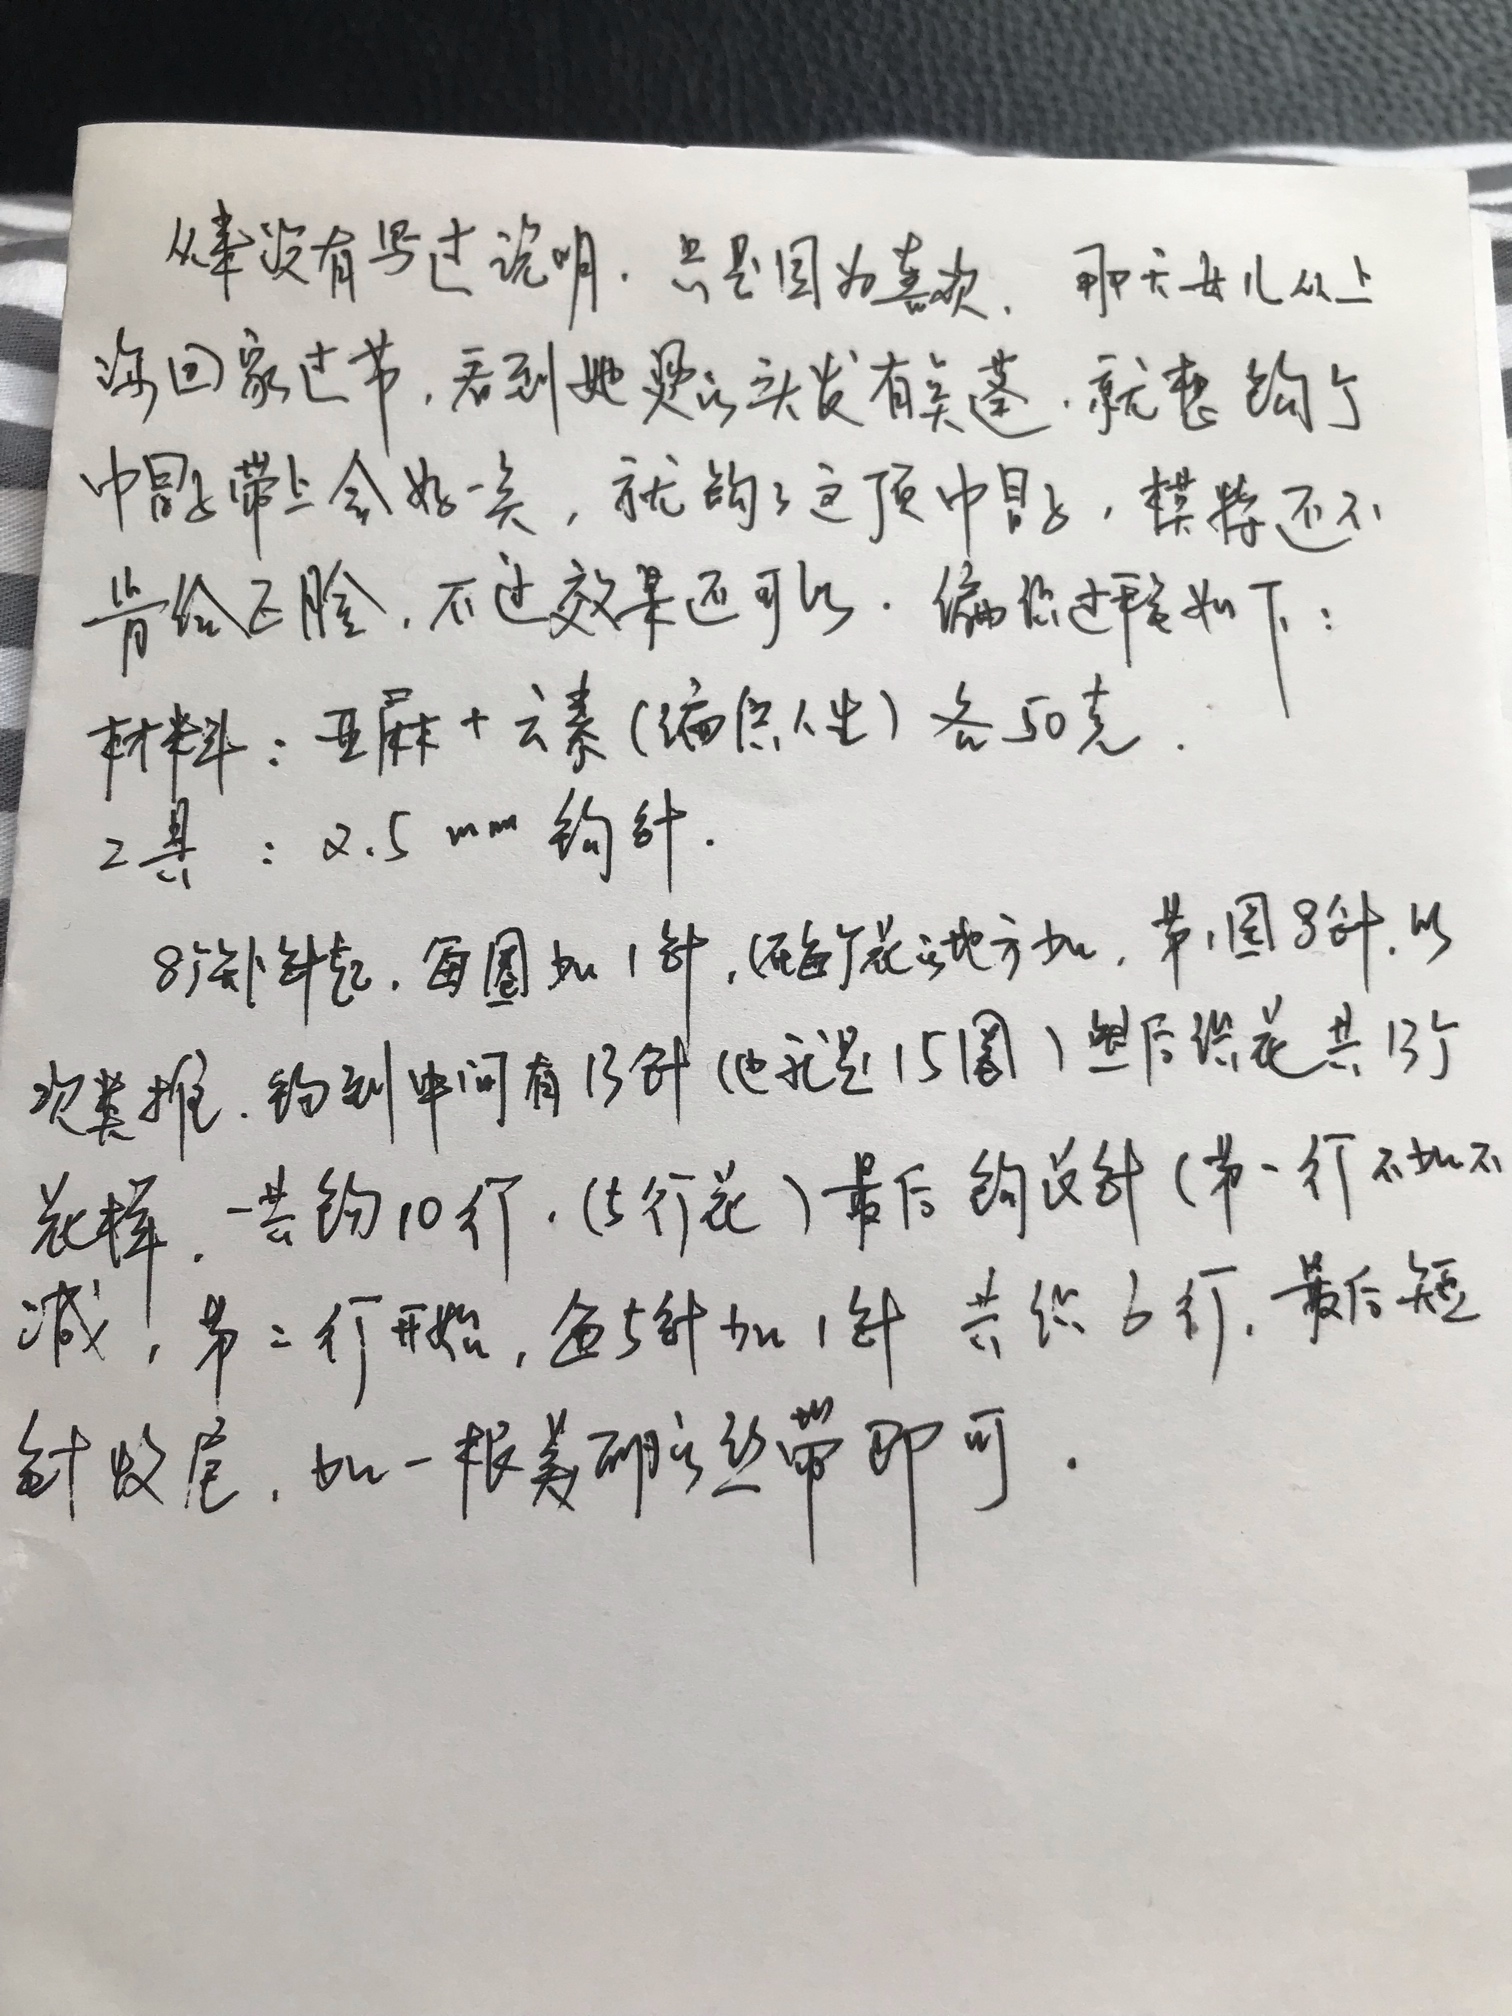 从来没有写过说明.只是因为喜欢.那天女儿从上
海回家过节,看到她烫的头发有点蓬.就想钩个
帽子带上会好一点,就钩了这顶帽子,模特还不
肯给正脸,不过效果还可以.编织过程如下:
材料:亚麻+云素(编织人生)各50克.
工具:2.5mm钩针.
8个辫针起.每圈加1针,(在每个花的地方加.第1圈8针.以
次类推.钩到中间有13针(也就是15圈)然后织花共13个
花样.一共钩10行.(5行花)最后钩短针(第一行不加不
减,第二行开始,每5针加1针共织6行.最后短
针收尾,加一根美丽的丝带即可.